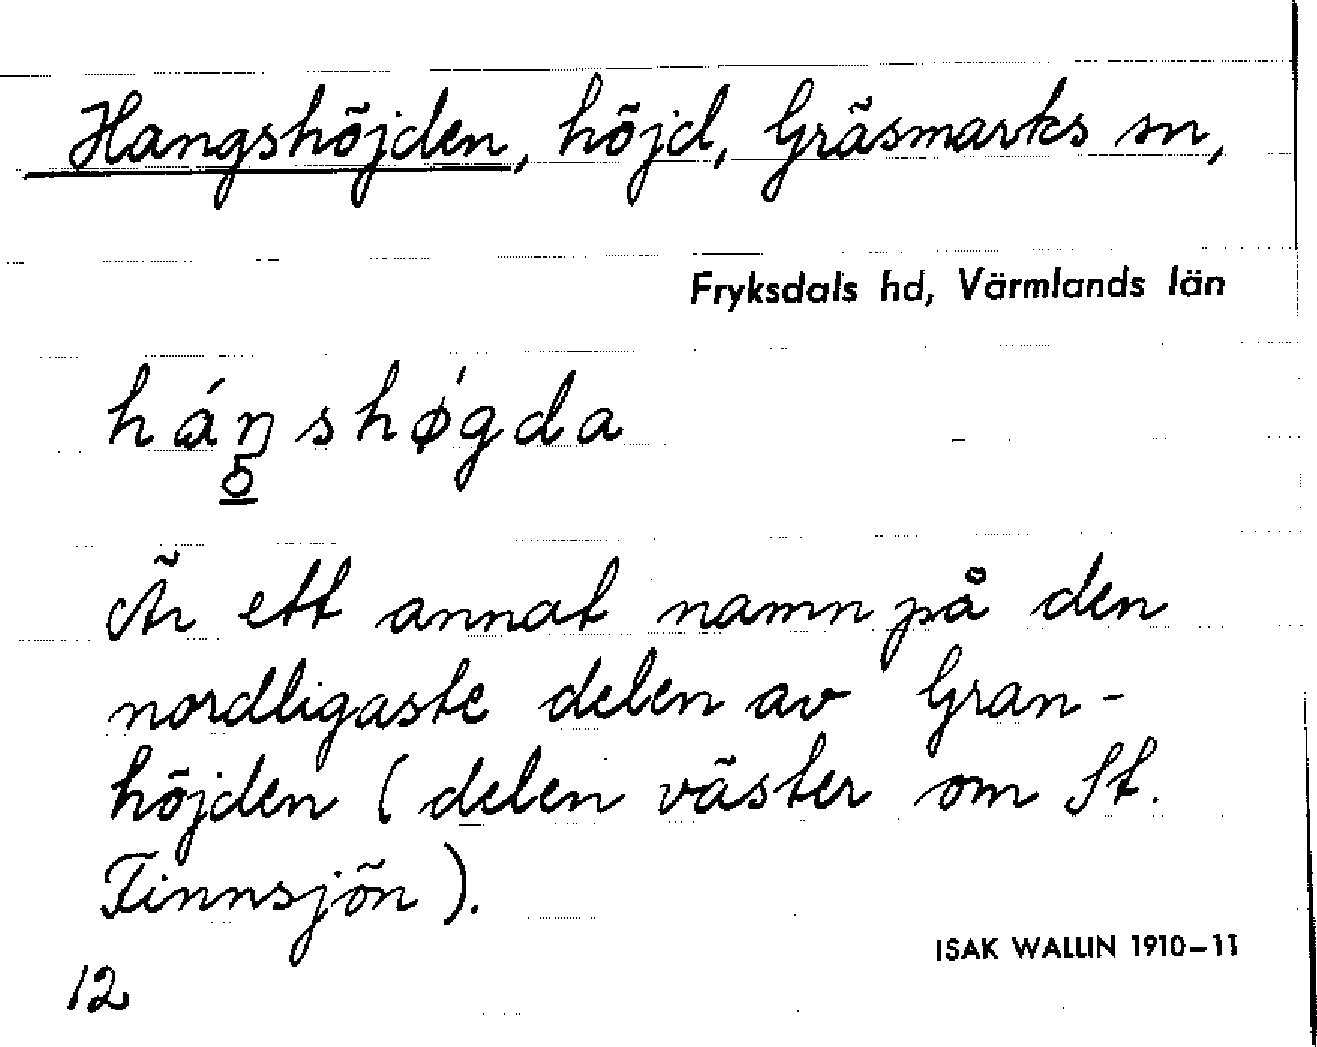 Hangshöjden, höjd, Gräsmarks sn,
Fryksdals hd, Värmlands län
háŋshǿgda
Är ett annat namn på den
nordligaste delen av Gran-
höjden (delen väster om St.
Finnsjön).
ISAK WALLIN 1910-11
12